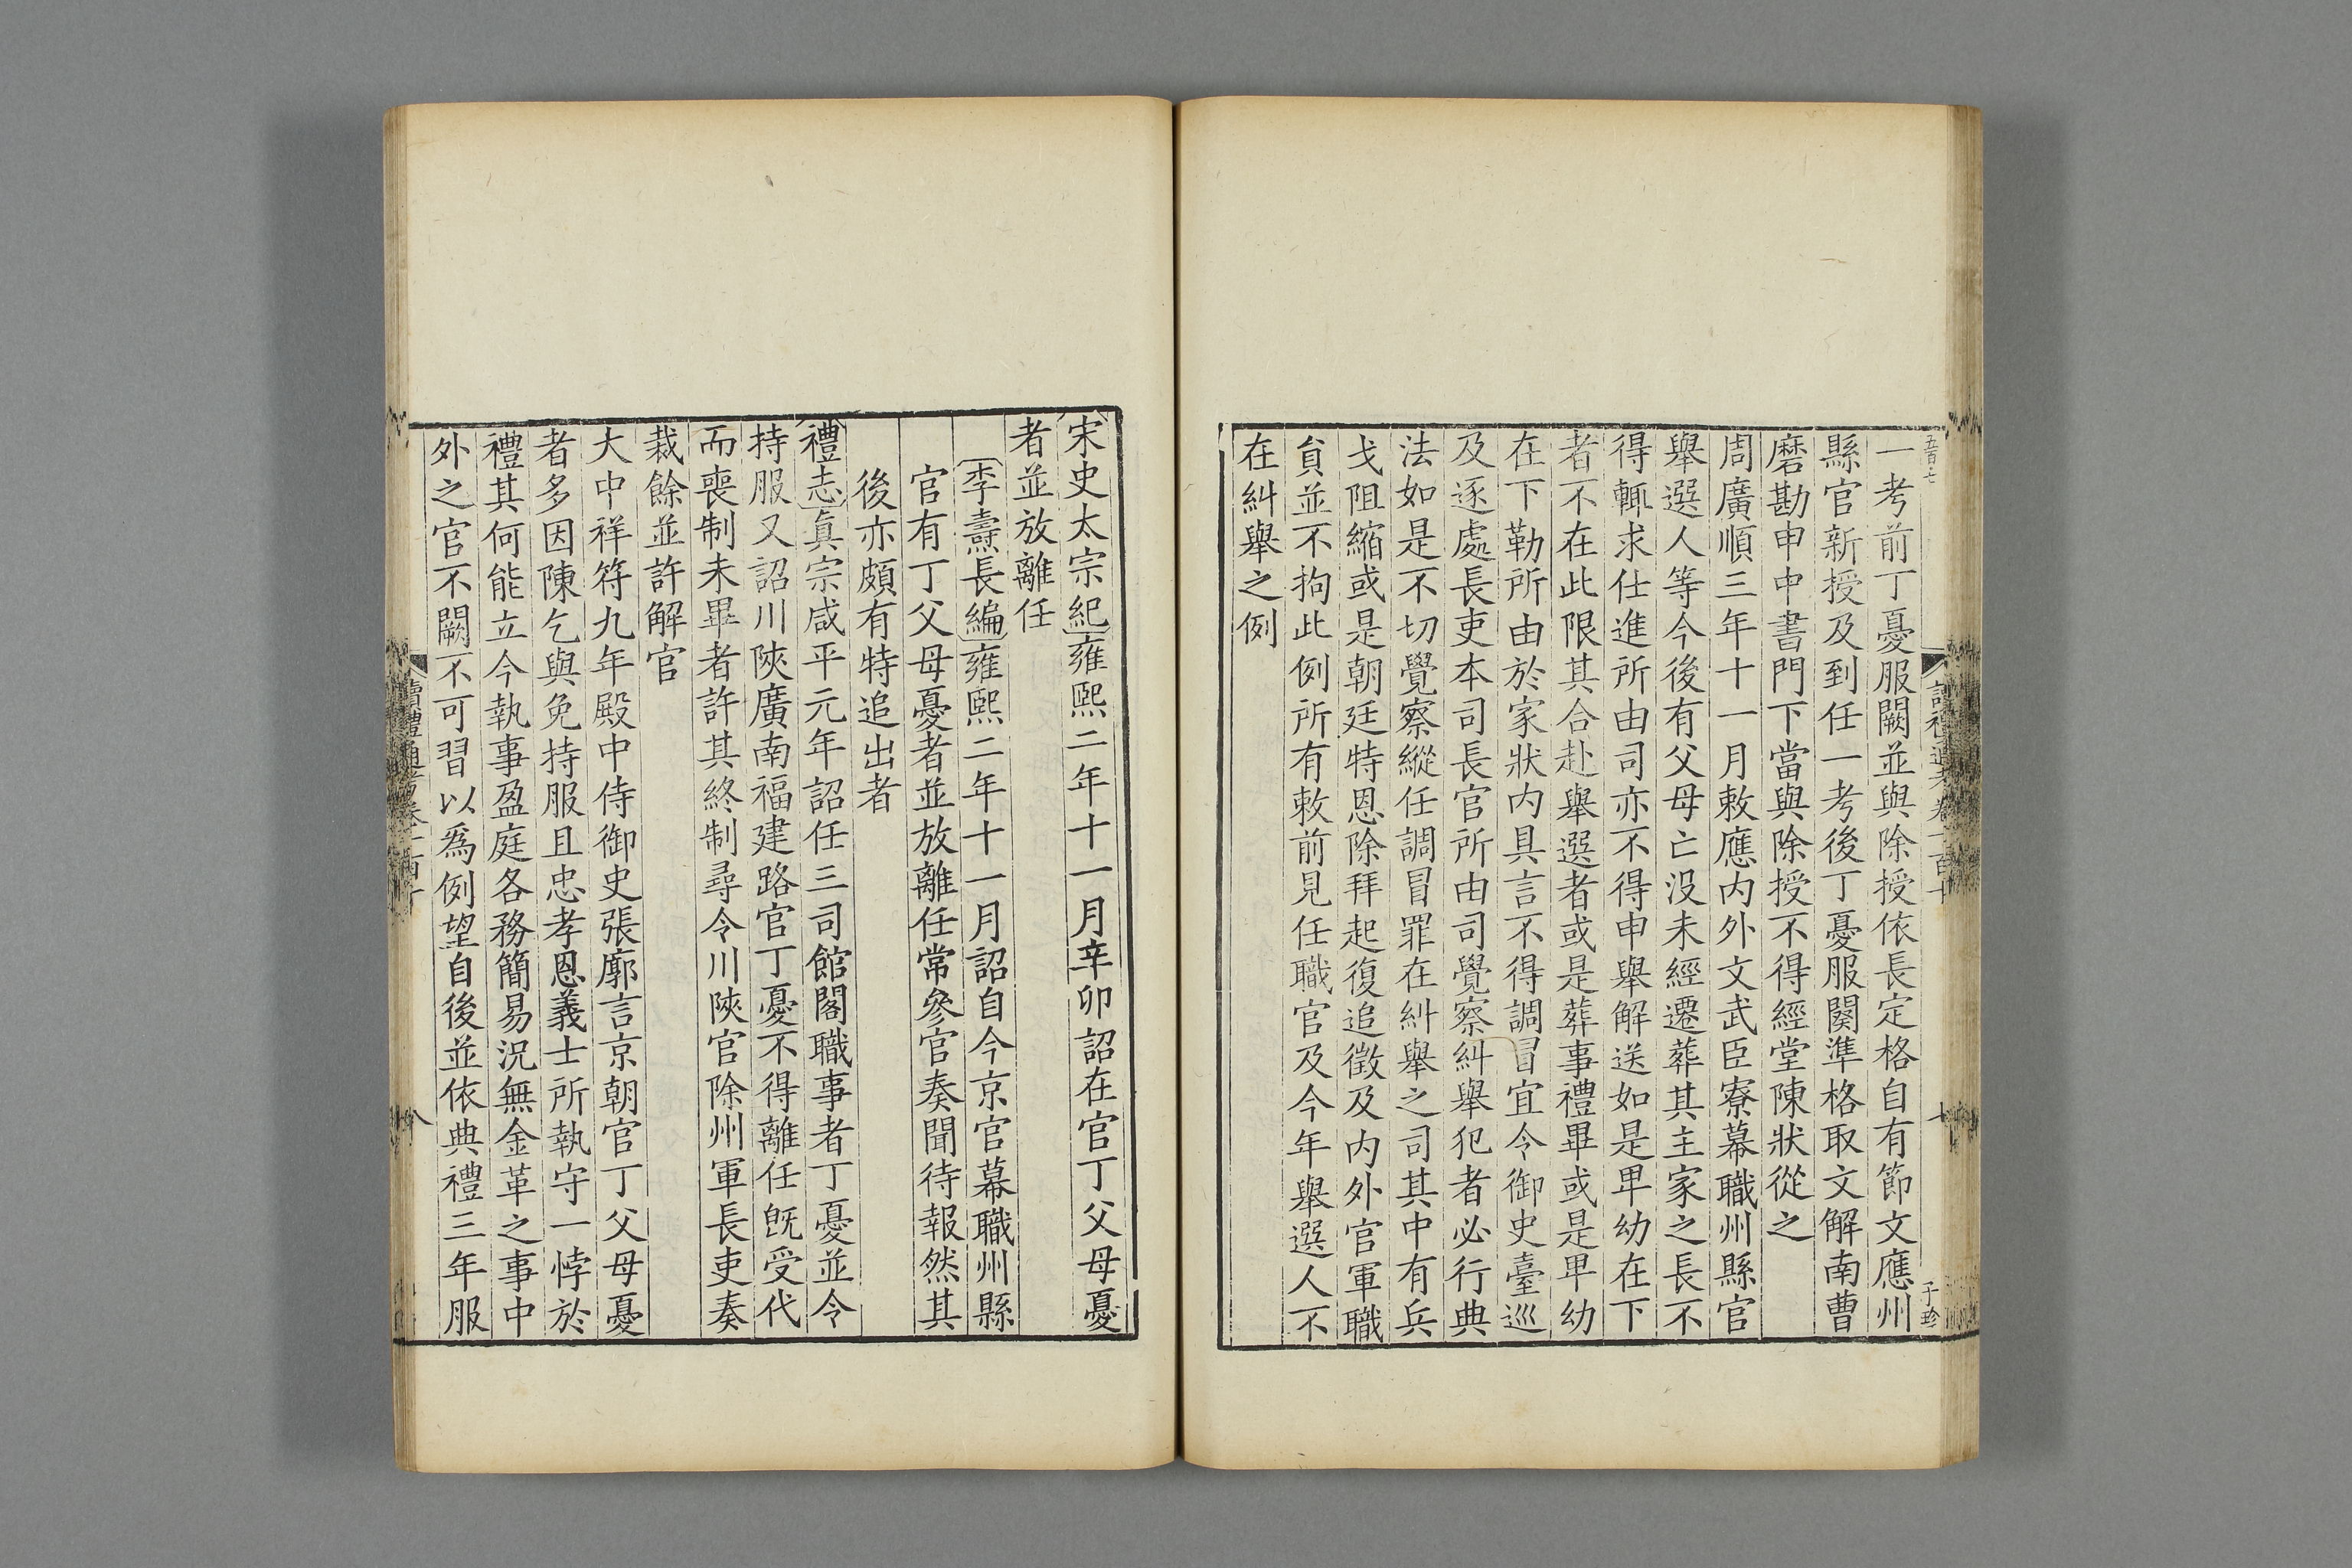 一考前丁憂服闕並與除授依長定格自有節文應州
縣官新授及到任一考後丁憂服闋準格取文解南曹
磨勘申中書門下當與除授不得經堂陳狀從之
周廣順三年十一月敕應内外文武臣寮幕職州縣官
舉選人等今後有父母亡没未經遷葬其主家之長不
得輒求仕進所由司亦不得申舉解送如是卑幼在下
者不在此限其合赴舉選者或是葬事禮畢或是卑幼
在下勒所由於家狀内具言不得調冒宜令御史臺巡
及逐處長吏本司長官所由司覺察糾舉犯者必行典
法如是不切覺察縱任調冒罪在糾舉之司其中有兵
戈阻縮或是朝廷特恩除拜起復追徵及内外官軍職
負並不拘此例所有敕前見任職官及今年舉選人不
在糾舉之例
宋史太宗紀雍熙二年十一月辛卯詔在官丁父母憂
者並放離任
李燾長編雍熙二年十一月詔自今京官幕職州縣
官有丁父母憂者並放離任常參官奏聞待報然其
後亦頗有特追出者
禮志眞宗咸平元年詔任三司館閣職事者丁憂並令
持服又詔川陝廣南福建路官丁憂不得離任既受代
而喪制未畢者許其終制尋令川陝官除州軍長吏奏
裁餘並許解官
大中祥符九年殿中侍御史張廓言京朝官丁父母憂
者多因陳乞與免持服且忠孝恩義士所執守一悖於
禮其何能立今執事盈庭各務簡易況無金革之事中
外之官不闕不可習以爲例望自後並依典禮三年服